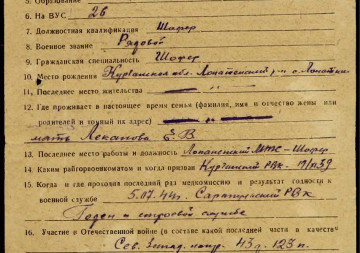 5. Образование
6. На ВУС 26
7. Должностная квалификация Шофер
8. Военное звание Рядовой
9. Гражданская специальность Шофер
10. Место рождения Курганская обл. Лопатинский р-н с. Лопатки
11. Последнее место жительства — " —
12. Где проживает в настоящее время семья (фамилия, имя и отчество жены или
родителей и точный их адрес) — " —
мать В
13. Последнее место работы и должность МТС - Шофер
14. Каким райгорвоенкоматом и когда призван РВК 39
15. Когда и где проходил последний раз медкомиссию и результат годности к
военной службе 5.07.44г. Сарапульский РВК
Годен к строевой службе
16. Участие в Отечественной войне (в составе какой последней части в качестве
Сев. Запад. напр. 43 д. 123 п.